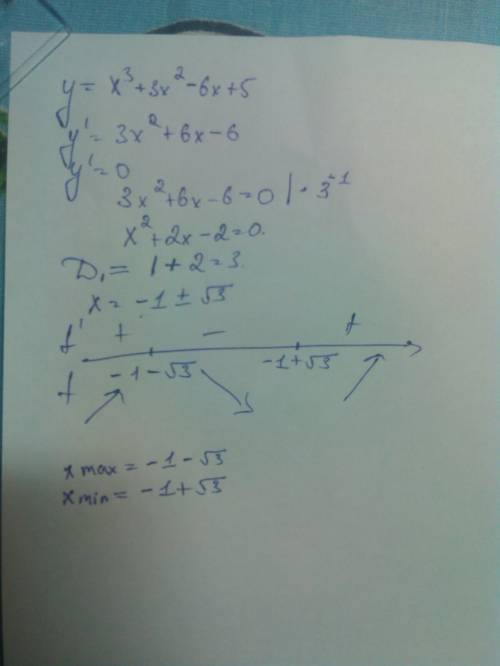 y = x³+3x²-6x+5
y' = 3x²+6x-6
y'=0
3x²+6x-6=0 | · 3⁻¹
x²+2x-2=0.
D₁ = 1+2=3.
x = -1 ± √3
f' + - +
-1-√3 -1+√3
f
x max = -1-√3
x min = -1+√3